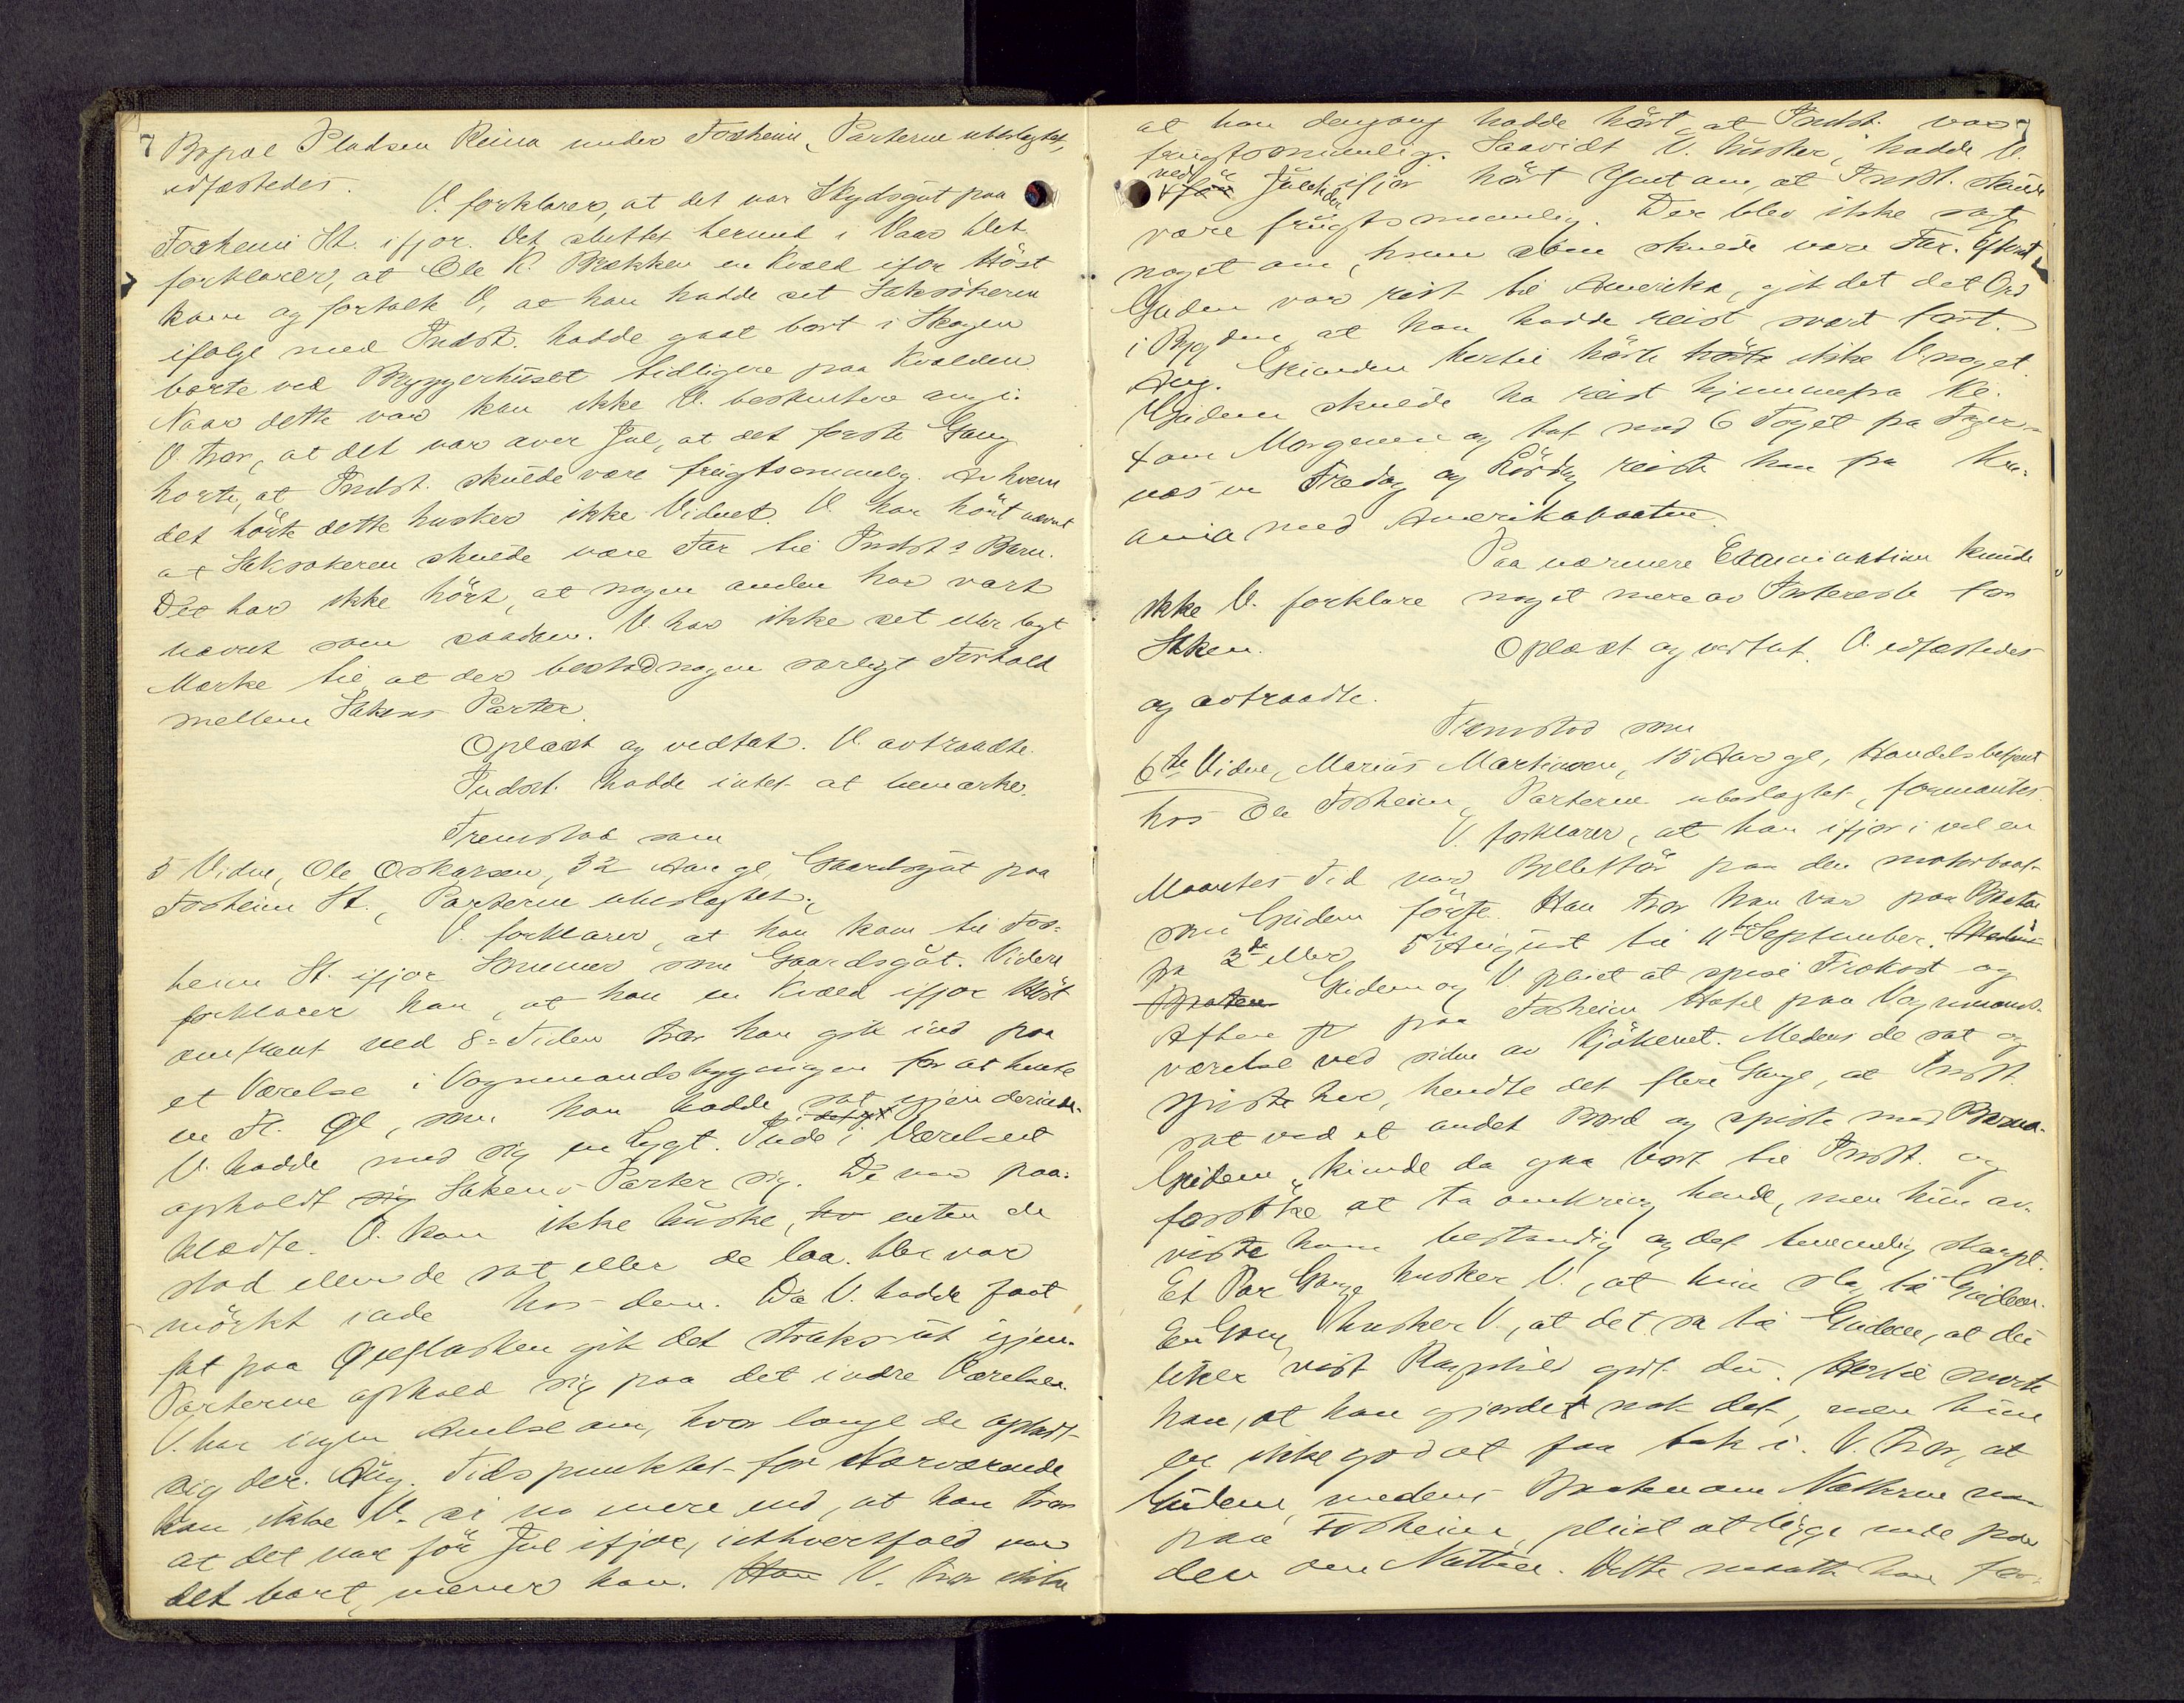 7 Bopæl Pladsen Reina under Fosheim, Parterne ubeslegtet,
edfæstedes.
V. forklarer, at det var Skydsgut paa
Fosheim St. ifjor. Det sluttet herund i Vaar. Det
forklarer, at Ole K. Bakken en Kvæld ifor Höst
kom og fortalte V, at han hadde set Saksökeren
ifølge med Indst. hadde gaat bort i Skogen
borte ved Bryggerhuset tidligere paa Kvælden.
Naar dette var kan ikke V. beskrive angi.
V. tror, at det var over Jul, at det første Gang
horte, at Indst. skulde være frugtsommelig. Av hvem
det hörte dette husker ikke Vidnet. V. har hört nævnt
at Saksøkeren skulde være Far til Indst.s Barn.
Det har ikke hört, at nogen anden har vært
nævnt som saadan. V. har ikke set eller lagt
Mærke til at der bestod nogen særligt Forhold
mellem Sakens Parter.
Oplæst og vedtat. V. avtraadte.
Indst. hadde intet at bemærke.
Fremstod som
5 Vidne, Ole Oskarsen, 32 Aar gl, Gaardsgut paa
Fosheim St., Parterne ubeslegtet.
V. forklarer, at han kom til Fos-
heim St. ifjor Sommer som Gaardsgut. Videre
forklarer han, at han en Kvæld ifjor Höst
omtrent ved 8-Tiden tror han gik ind paa
et Værelse i Vognmandsbygningen for at hente
en Fl. Øl, som han hadde sat igjen derinde.
V. hadde med sig en Lygt. Inde i Værelset
opholdt sig Sakens Parter sig. De var paa-
klædte. V. kan ikke huske, enten de
stod eller de sat eller de laa. Der var
mörkt inde hos dem. Da V. hadde faat
fat paa Ølflasken gik det straks ut igjen.
Parterne ophold sig paa det indre Værelse.
V. har ingen Anelse om, hvor længe de opholdt
sig der. Ang. Tidspunktet for Nærværende
kan ikke V. si no mere end, at han tror
at det var för Jul ifjor, ialhvertfald var
det bart, mener han. Han V. tror ikke
at han dengang hadde hört at Indst. var 7
frugtsommelig. Saavidt V. husker, hadde V.
ved Juletider ifjor hört Gjet om, at Indst. skulde
være frugtsommelig. Der blev ikke sagt
noget om, hvem som skulde være Far. Efterat
Gudem var reist til Amerika, gik det det Ord
i Bygden at han hadde reist svært fort.
Ang. Grunden hertil hörte hörte ikke V. noget.
Gudem skulde ha reist hjemmefra Kl.
4 om Morgenen og tat med 6 Toget fra Fager-
næs en Fredag og Lördag reiste han fra Kri-
ania med Amerikabaaten.
Paa nærmere Examination kunde
ikke V. forklare noget mere av Interesse for
Saken.
Oplæst og vedtat. V. edfæstedes
og avtraadte.
Fremstod som
6te Vidne, Marius Martinsen, 15 Aar gl, Handelsbetjent
hos Ole Fosheim, Parterne ubeslegtet, formantes.
V. forklarer, at han ifjor i vel en
Maaneds Tid var Billettör paa den motorbaat
som Gudem förte. Han tror han var paa Baaten
fra 3de eller 5te August til 11te September.
Baaten Gudem og V. pleiet at spise Frokost og
Aftens paa Fosheim Hotel paa Vognmands-
værelse ved siden av Kjökkenet. Medens de sat og
spiste her, hendte det flere Gange, at Indst.
sat ved et andet Bord og spiste med Barna.
Gudem kunde da gaa bort til Indst. og
forsöke at ta omkring hende, men hun av-
viste ham bestandig og det temmelig skarpt.
Et Par Gange husker V., at hun slog til Gudem.
En Gang husker V., at det sa til Gudem, at du
liker vist Ragnhild godt du. Hertil svarte
han, at han gjorde nok det, men hun
er ikke god at faa tak i. V. tror, at
Gudem, medens Baaten om Nætterne var
paa Fosheim, pleiet at ligge nede paa
den om Natten. Dette maatte han for-